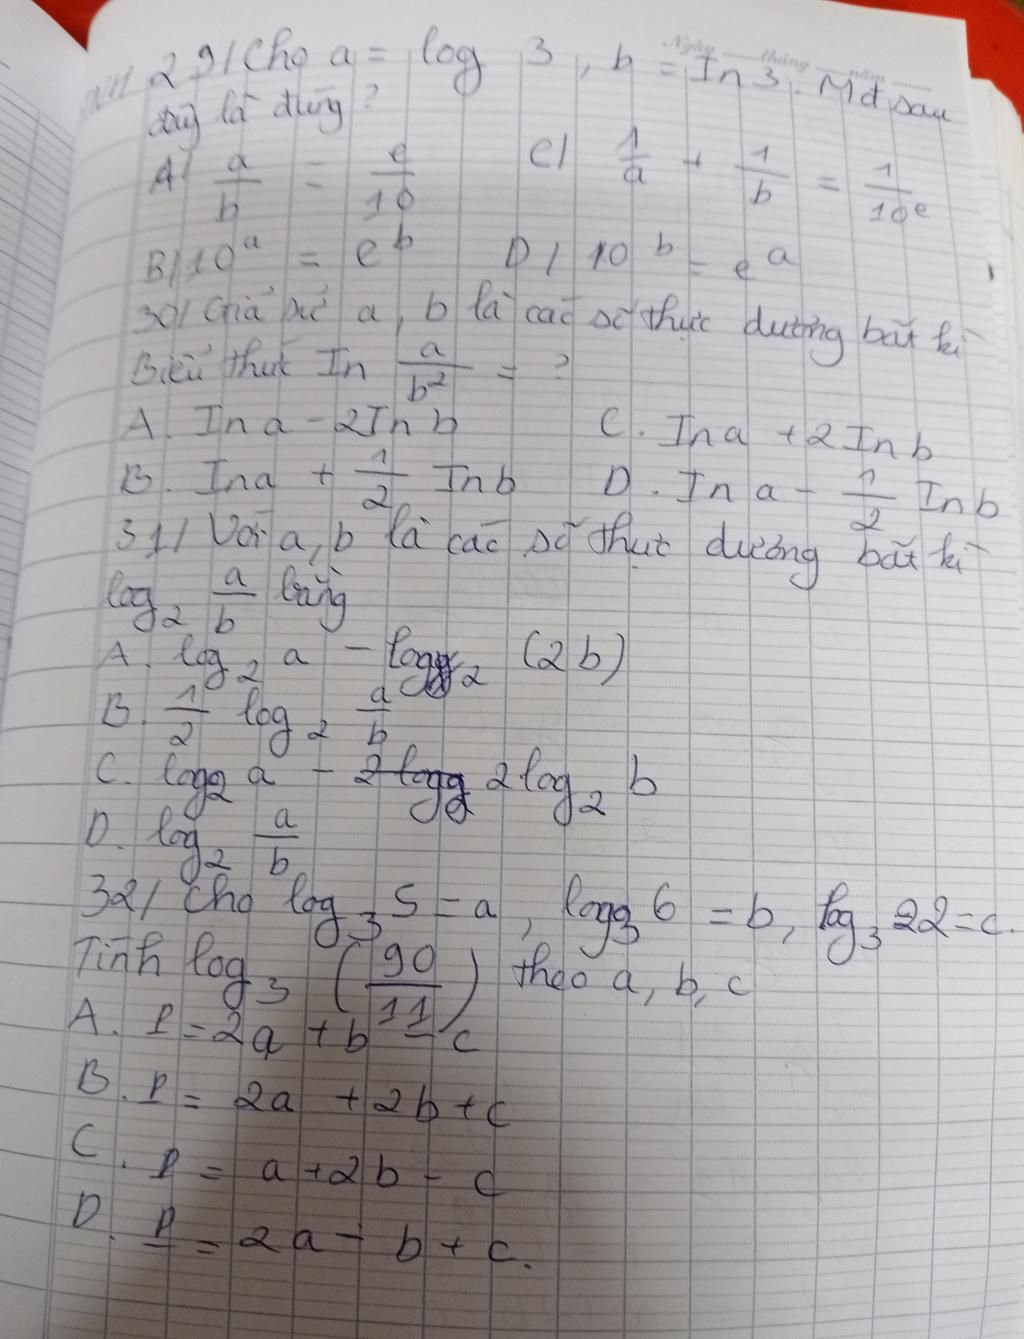 Ngày ........ tháng ........ năm ........
29/ Cho a = log 3, b = In 3. Mđ sau
đây là đúng?
A/ a/b = e/10    C/ 1/a + 1/b = 1/10^e
B/ 10^a = e^b    D/ 10^b = e^a
30/ Giả sử a, b là các số thực dương bất kì
Biểu thức In a/b² = ?
A. In a - 2In b    C. In a + 2 In b
B. In a + 1/2 In b    D. In a - 1/2 In b
31/ Với a, b là các số thực dương bất kì
log₂ a/b bằng
A. log₂ a - log₂ (2b)
B. 1/2 log₂ a/b
C. log₂ a - 2log₂ b
D. log₂ a/b
32/ Cho log₃ 5 = a, log₃ 6 = b, log₃ 22 = c.
Tính log₃ (90/11) theo a, b, c
A. P = 2a + b - c
B. P = 2a + 2b + c
C. P = a + 2b - c
D. P = 2a - b + c.